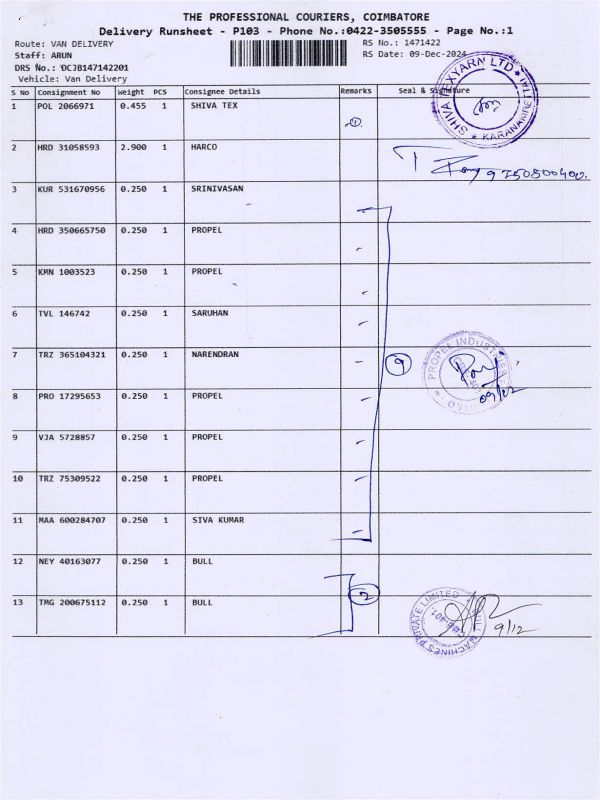 THE PROFESSIONAL COURIERS, COIMBATORE
Delivery Runsheet - P103 - Phone No.:0422-3505555 - Page No.:1
Route: VAN DELIVERY RS No.: 1471422
Staff: ARUN RS Date: 09-Dec-2024
DRS No.: DCJB147142201
Vehicle: Van Delivery
S No Consignment No Weight PCS Consignee Details Remarks Seal & Signature
1 POL 2066971 0.455 1 SHIVA TEX ①
SHIVA TEXYARN LTD ★ KARANAMPE
2 HRD 31058593 2.900 1 HARCO 9750800400
3 KUR 531670956 0.250 1 SRINIVASAN
4 HRD 350665750 0.250 1 PROPEL
5 KMN 1003523 0.250 1 PROPEL
6 TVL 146742 0.250 1 SARUHAN
7 TRZ 365104321 0.250 1 NARENDRAN 9
PROPEL INDUSTRIES
09/12
8 PRO 17295653 0.250 1 PROPEL
9 VJA 5728857 0.250 1 PROPEL
10 TRZ 75309522 0.250 1 PROPEL
11 MAA 600284707 0.250 1 SIVA KUMAR
12 NEY 40163077 0.250 1 BULL
13 TMG 200675112 0.250 1 BULL 2
MACHINES PRIVATE LIMITED
9/12